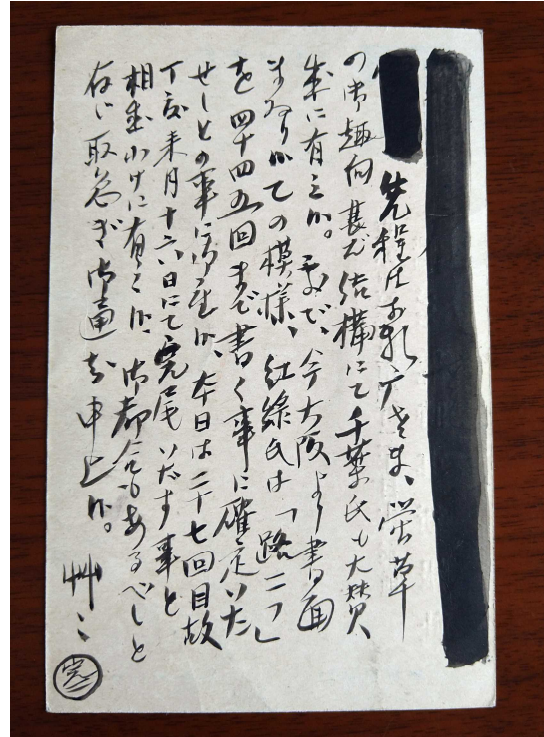 先程は失礼
の御趣向甚だ結構にて千葉氏も大賛
成に有之候。只で、今大阪より書面
まゐりかての模様、紅緑氏は「路二つ」
を四十四五回まで書く事に確定いた
せしとの事に御座候、本日は二十七回目故
丁度来月十六日にて完尾いたす事と
相成わけに有之候、御都合もあるべしと
存じ取急ぎ御通知申上候。
艸々